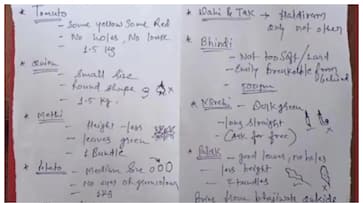 * Tomato
- Some yellow Some Red
- No holes, No loose
- 1.5 kg
* Onion
- Small Size
- Round shape
- 1.5 kg.
* Methi
- Height - less
- leaves green
- 1 Bundle
* Potato
- Medium Size
- No eyes or green colour
- 1 kg
* Dahi & Tak → Haldiram
only not other
* Bhindi
- Not too Soft / hard
- Easily breakable from behind
- 500gm
- Dark green
- less straight
- (Ask for free)
* Palak
- good leaves, no holes
- less height
- 2 Bundles
Bring from bhajiwala outside